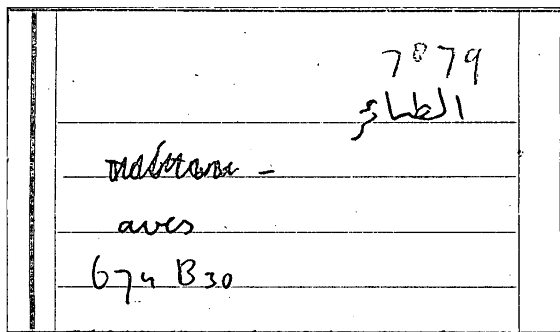 7879
الطائر
aves
674 B30